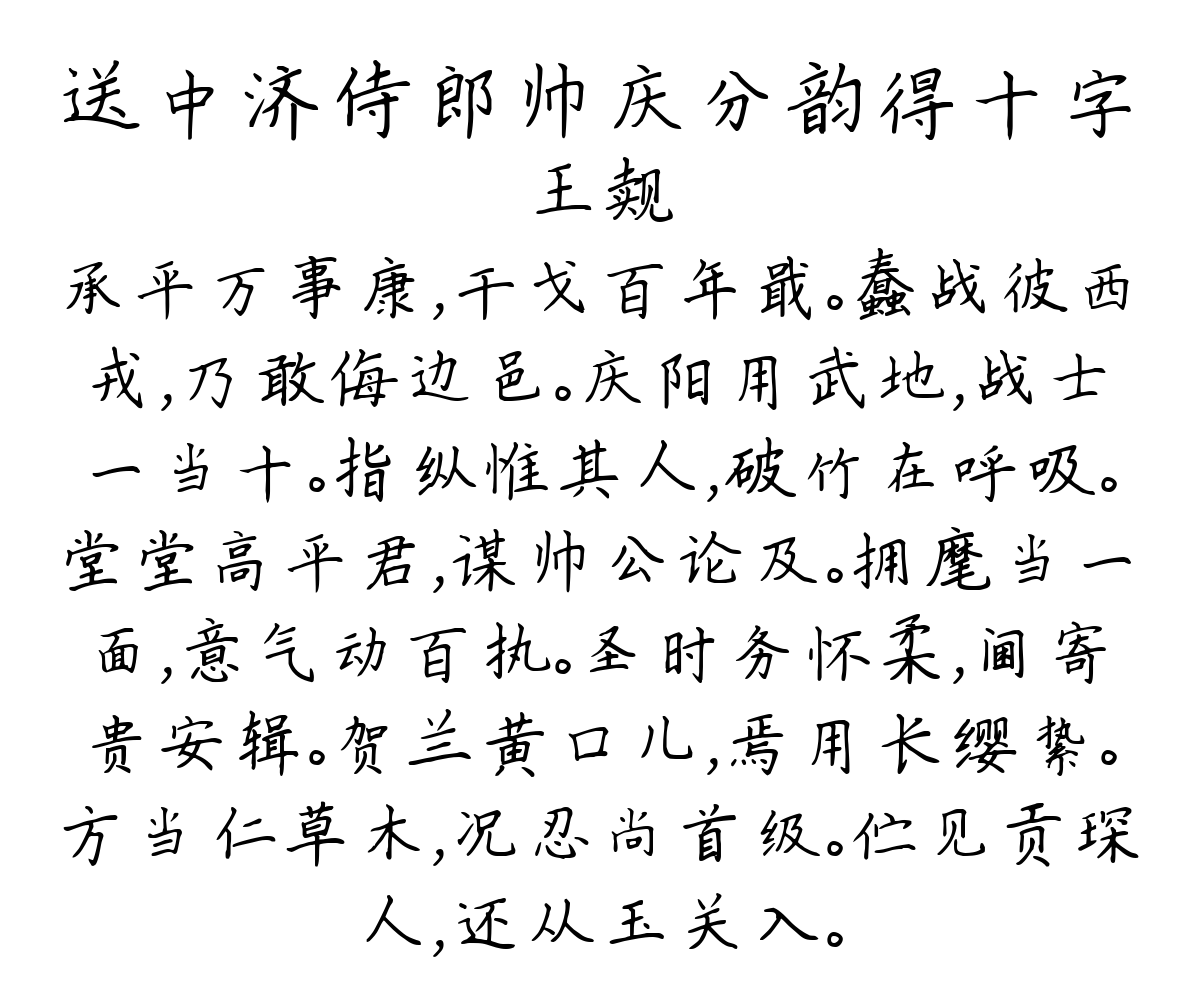 送中济侍郎帅庆分韵得十字
王觌
承平万事康,干戈百年戢。蠢战彼西
戎,乃敢侮边邑。庆阳用武地,战士
一当十。指纵惟其人,破竹在呼吸。
堂堂高平君,谋帅公论及。拥麾当一
面,意气动百执。圣时务怀柔,阃寄
贵安辑。贺兰黄口儿,焉用长缨絷。
方当仁草木,况忍尚首级。伫见贡琛
人,还从玉关入。